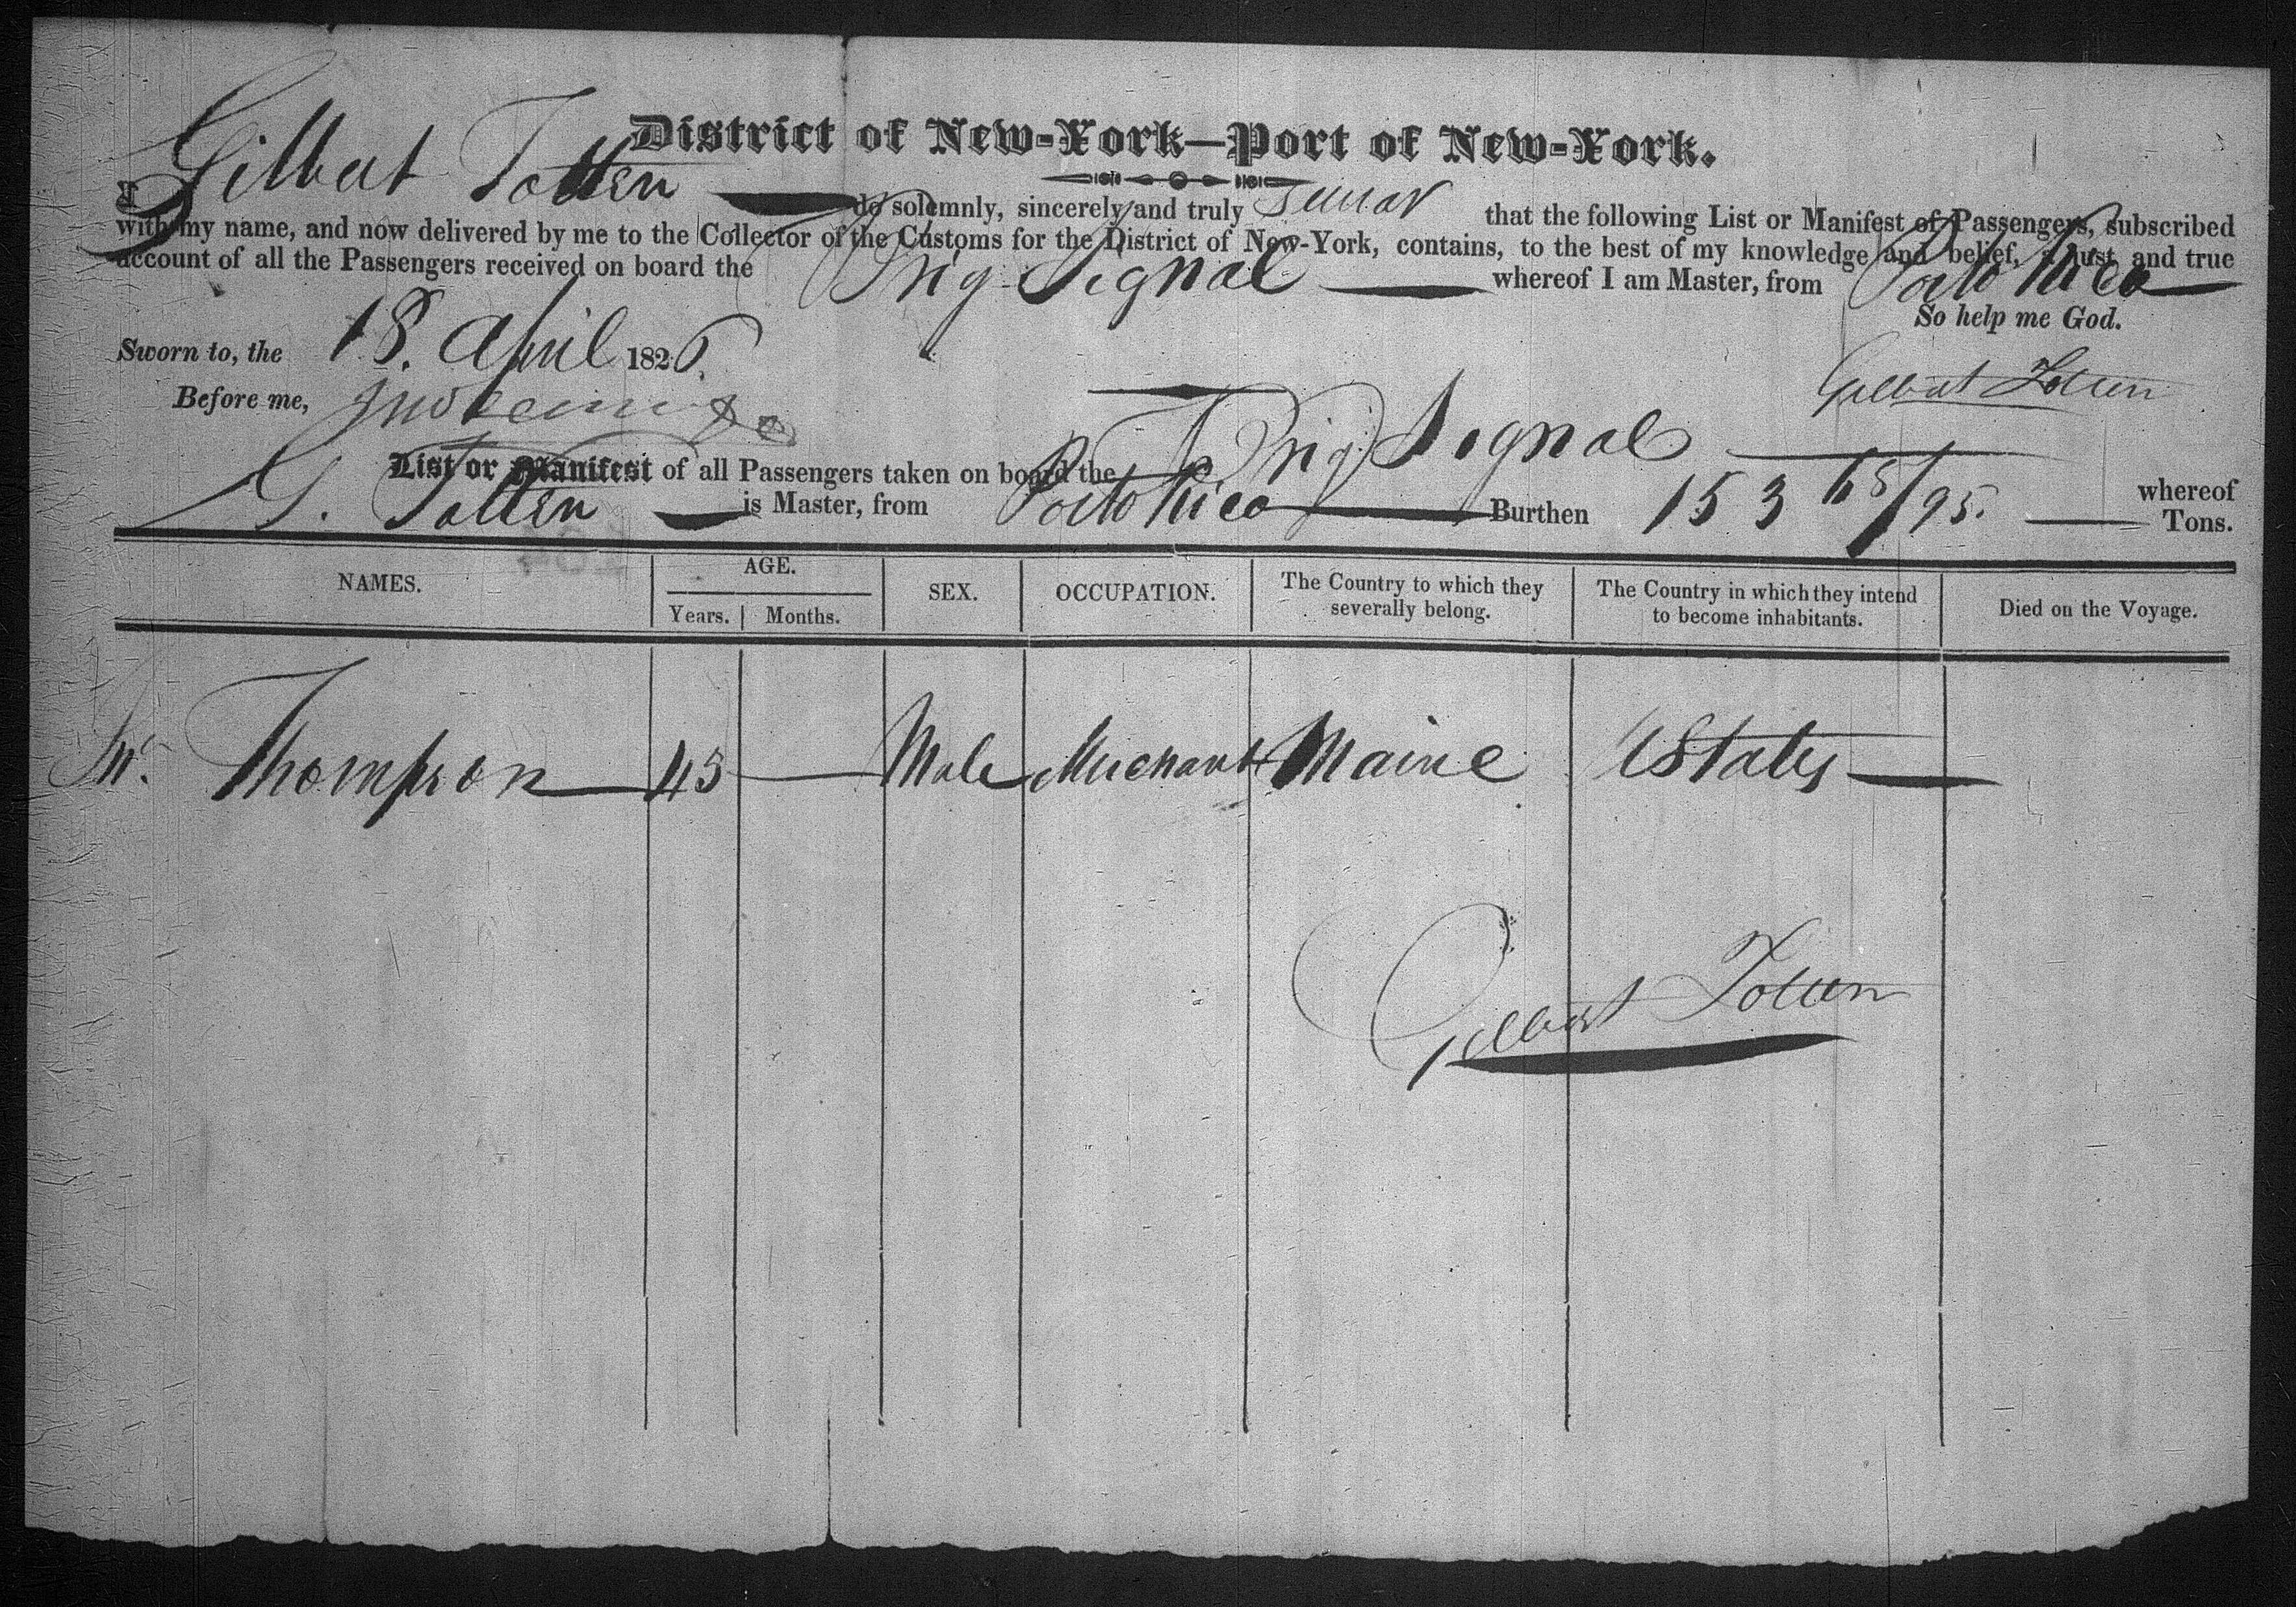 District of New-York—Port of New-York.
I Gilbert Totten do solemnly, sincerely and truly swear that the following List or Manifest of Passengers, subscribed
with my name, and now delivered by me to the Collector of the Customs for the District of New-York, contains, to the best of my knowledge and belief, a just and true
account of all the Passengers received on board the Brig Signal whereof I am Master, from Porto Rico
So help me God.
Sworn to, the 18. April 1826.
Before me,
Gilbert Totten
List or Manifest of all Passengers taken on board the Brig Signal whereof
G. Totten is Master, from Porto Rico Burthen 153 68/95. Tons.
NAMES. AGE. SEX. OCCUPATION. The Country to which they severally belong. The Country in which they intend to become inhabitants. Died on the Voyage.
Years. Months.
Mr. Thompson 45 Male Merchant Maine UStates
Gilbert Totten